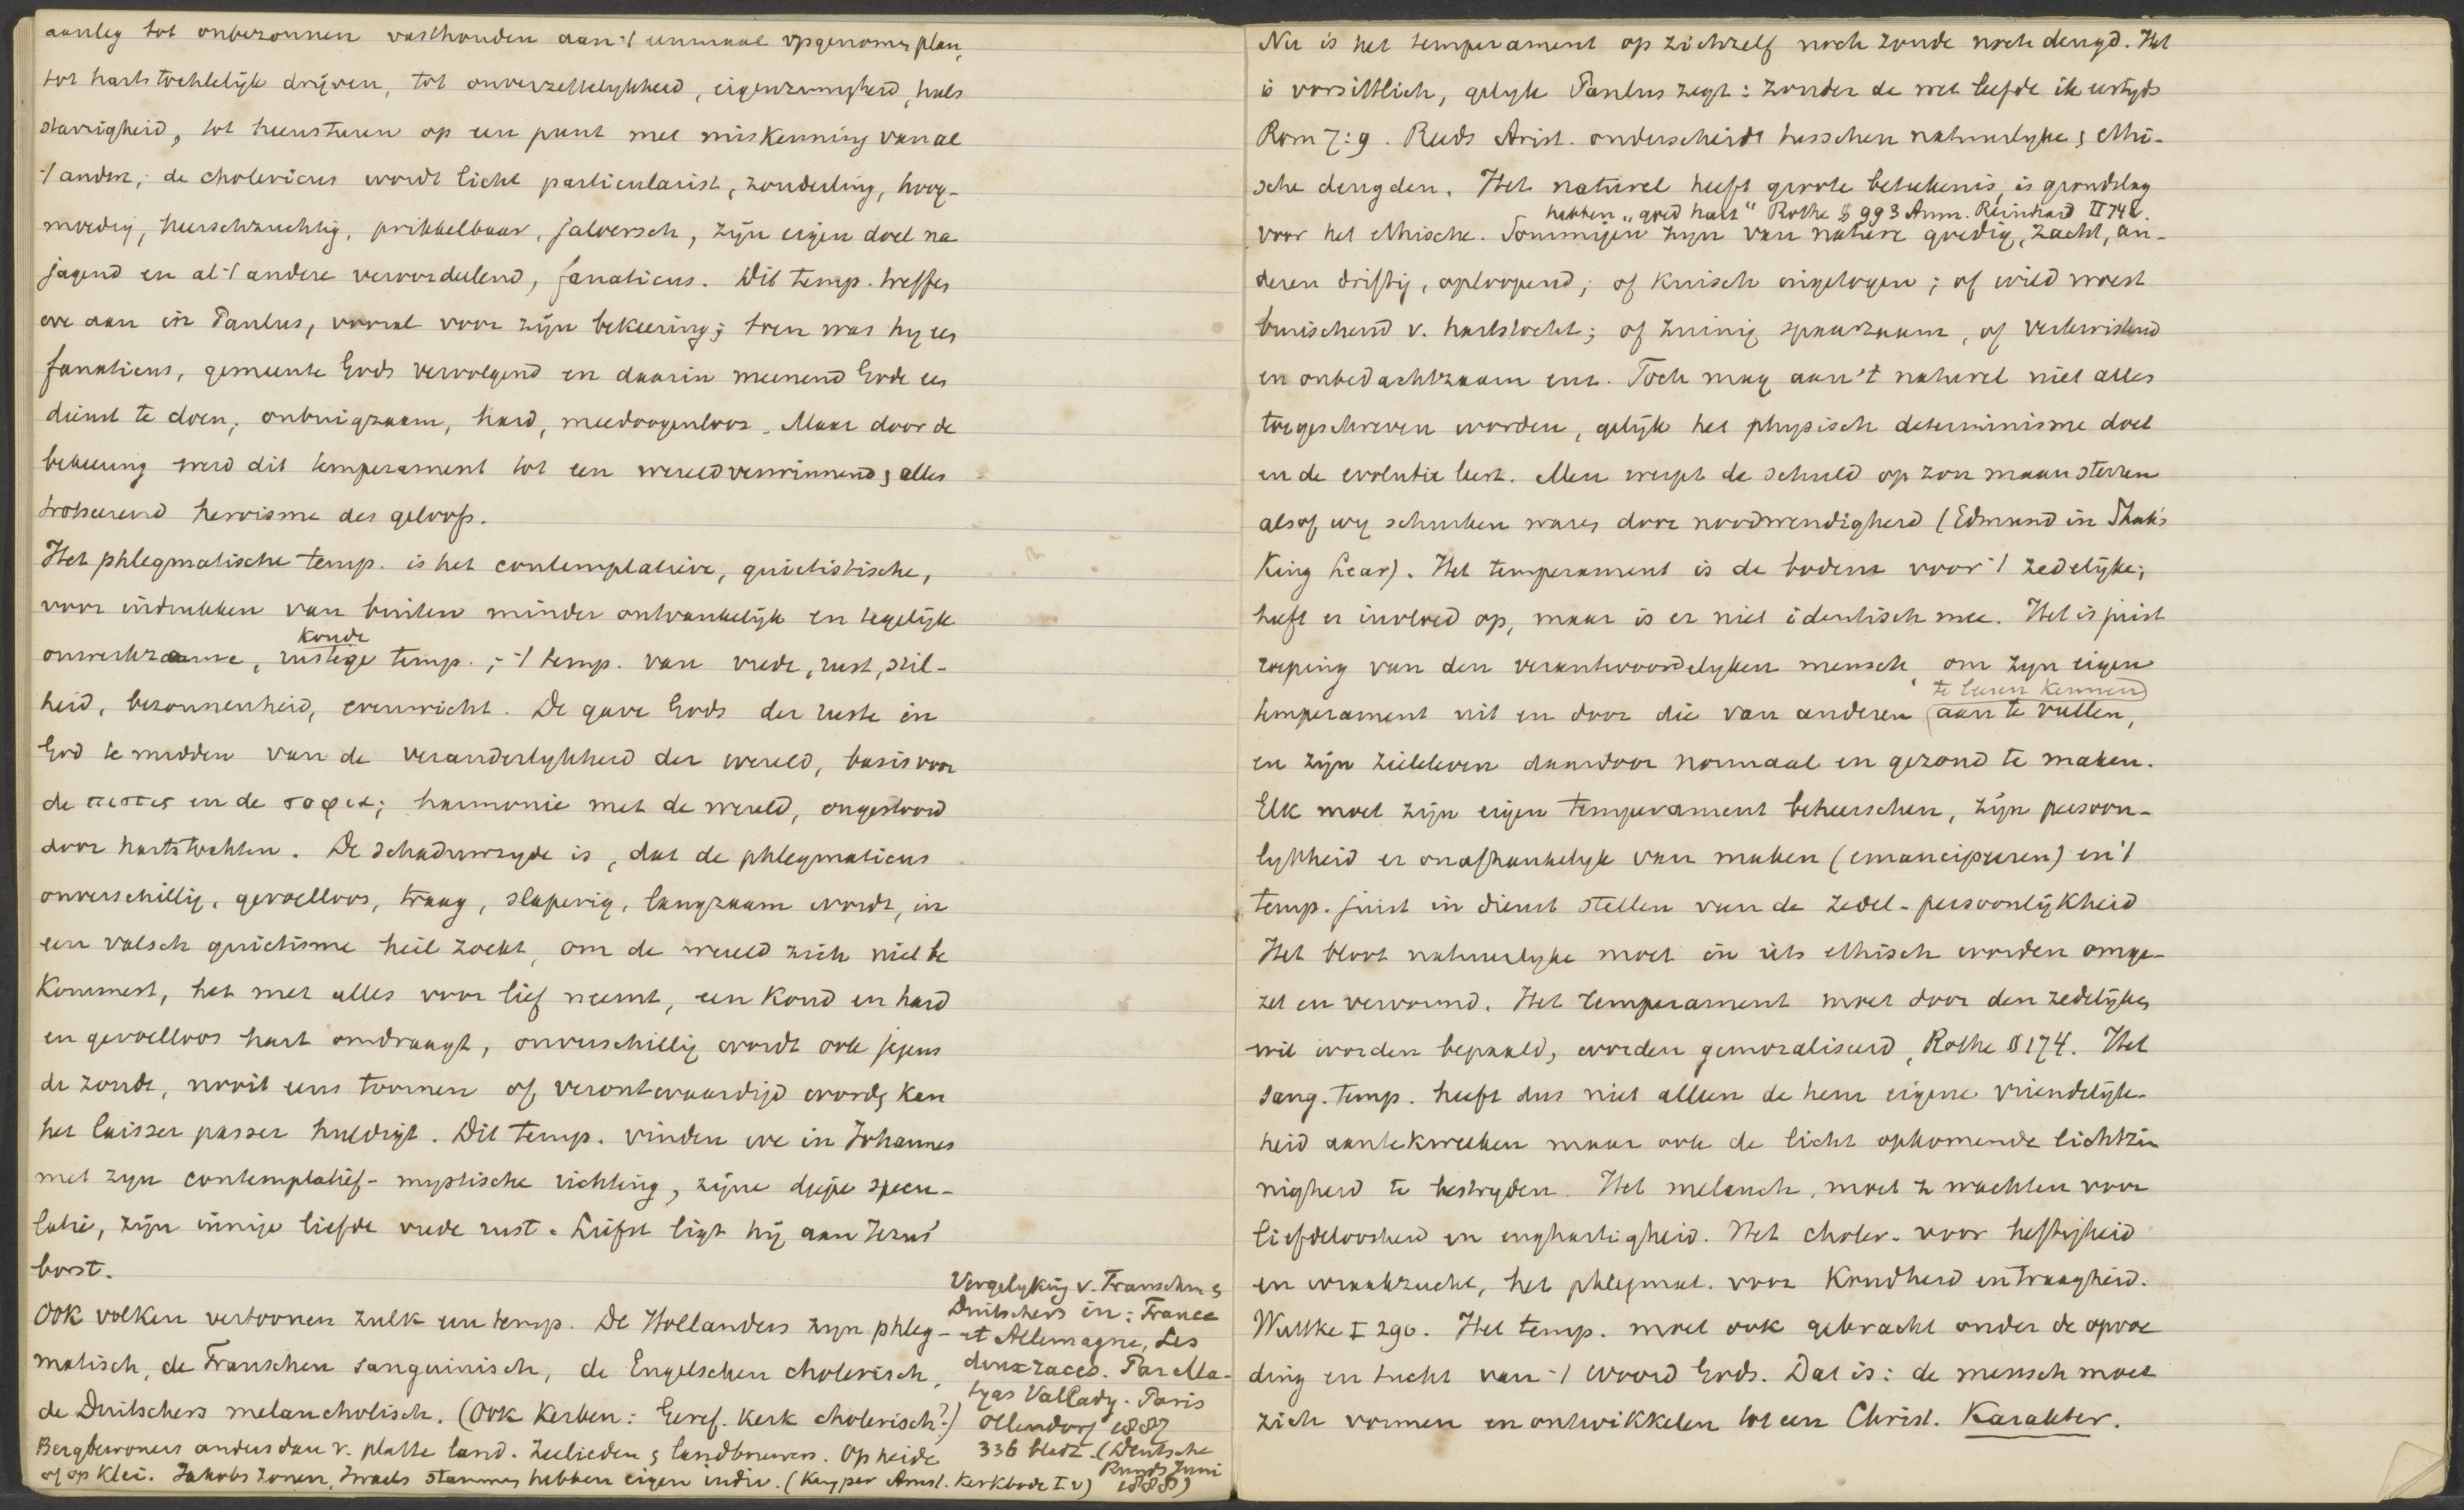 aanleg tot onbezonnen vasthouden aan 't eenmaal opgenomen plan,
tot hartstochtelijk drijven, tot onverzettelykheid, eigenzinnigheid, hals
starrigheid, tot heensturen op een punt met miskenning van al
't andere; de cholericus wordt licht particularist, zonderling, hoog-
moedig, heerschzuchtig, prikkelbaar, jaloersch, zijn eigen doel na
jagend en al 't andere veroordeelend, fanaticus. Dit temp. treffen
we aan in Paulus, vooral voor zijn bekeering; toen was hy een
fanaticus, gemeente Gods vervolgend en daarin meenend Gode een
dienst te doen, onbuigzaam, hard, meedoogenloos. Maar door de
bekeering werd dit temperament tot een wereldverwinnend, alles
trotseerend heroisme des geloofs.
Het phlegmatische temp. is het contemplatieve, quietistische,
voor indrukken van buiten minder ontvankelijk en tegelijk
koude
onwerkzame, rustige temp.; 't temp. van vrede, rust, stil-
heid, bezonnenheid, evenwicht. De gave Gods der ruste in
God te midden van de veranderlykheid der wereld, basis voor
de πιστις en de σοφια; harmonie met de wereld, ongestoord
door hartstochten. De schaduwzyde is, dat de phlegmaticus
onverschillig, gevoelloos, traag, slaperig, langzaam wordt, in
een valsch quietisme heil zoekt, om de wereld zich niet be
kommert, het met alles voor lief neemt, een koud en hard
en gevoelloos hart omdraagt, onverschillig wordt ook jegens
de zonde, nooit eens toornen of verontwaardigd worden kan
het laisser passer huldigt. Dit temp. vinden we in Johannes
met zyn contemplatief-mystische richting, zijne diepe specu-
latie, zijn innige liefde vrede rust. Liefst ligt hij aan Jezus'
borst.
Ook volken vertoonen zulk een temp. De Hollanders zyn phleg-
matisch, de Franschen sanguinisch, de Engelschen cholerisch,
de Duitschers melancholisch. (Ook Kerken: Geref. Kerk cholerisch?)
Bergbewoners anders dan v. platte land. Zeelieden & landbouwers. Op heide
of op klei. Jakobs zonen, Israels stammen hebben eigen indiv. (Kuyper Amst. Kerkbode I v)
Vergelyking v. Franschen &
Duitschers in: France
et Allemagne, Les
deux races. Par
Vallady. Paris
Ollendorf 1887
336 bladz. (Deutsche
Runds Juni
1888)
Nu is het temperament op zichzelf noch zonde noch deugd. Het
is vorsittlich, gelyk Paulus zegt: zonder de wet leefde ik eertyds
Rom 7:9. Reeds Arist. onderscheidt tusschen natuurlyke & ethi-
sche deugden. Het naturel heeft groote beteekenis, is grondslag
hebben "goed hart" Rothe § 993 Anm. Reinhard II 742.
voor het ethische. Sommigen zyn van nature goedig, zacht, an-
deren driftig, oploopend; of kuisch ingetogen; of wild woest
bruischend v. hartstocht; of zuinig spaarzaam, of verkwistend
en onbedachtzaam enz. Toch mag aan 't naturel niet alles
toegeschreven worden, gelijk het physisch determinisme doet
en de evolutie leert. Men werpt de schuld op zon maan sterren
alsof wy schurken waren door noodwendigheid (Edmund in Shak's
King Lear). Het temperament is de bodem voor 't zedelijke;
heeft er invloed op, maar is er niet identisch mee. Het is juist
roeping van den verantwoordelyken mensch, om zyn eigen
te leeren kennen
temperament uit en door die van anderen (aan te vullen,
en zijn zieleleven daardoor normaal en gezond te maken.
Elk moet zijn eigen temperament beheerschen, zijn persoon-
lykheid er onafhankelyk van maken (emancipeeren) en 't
temp. juist in dienst stellen van de zedel. persoonlijkheid
Het bloot natuurlyke moet in iets ethisch worden omge-
zet en vervormd. Het temperament moet door den zedelijken
wil worden bepaald, worden gemoraliseerd, Rothe § 174. Het
sang. temp. heeft dus niet alleen de hem eigene vriendelijk-
heid aantekweeken maar ook de licht opkomende lichtzin
nigheid te bestryden. Het melanch. moet z wachten voor
liefdeloosheid en enghartigheid. Het choler. voor heftigheid
en wraakzucht, het phlegmat. voor koudheid en traagheid.
Wuttke I 290. Het temp. moet ook gebracht onder de opvoe
ding en tucht van 't woord Gods. Dat is: de mensch moet
zich vormen en ontwikkelen tot een Christ. Karakter.